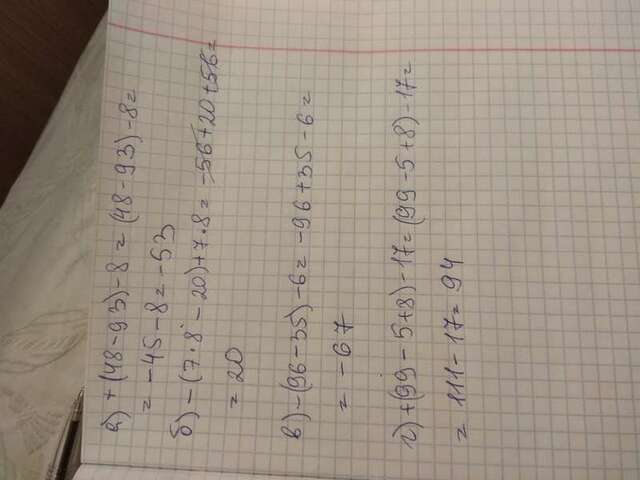 а) +(48-93)-8=(48-93)-8=
= -45-8=-53
б) -(7·8-20)+7·8= -56+20+56=
= 20
в) -(96-35)-6= -96+35-6=
= -67
г) +(99-5+8)-17=(99-5+8)-17=
= 111-17=94